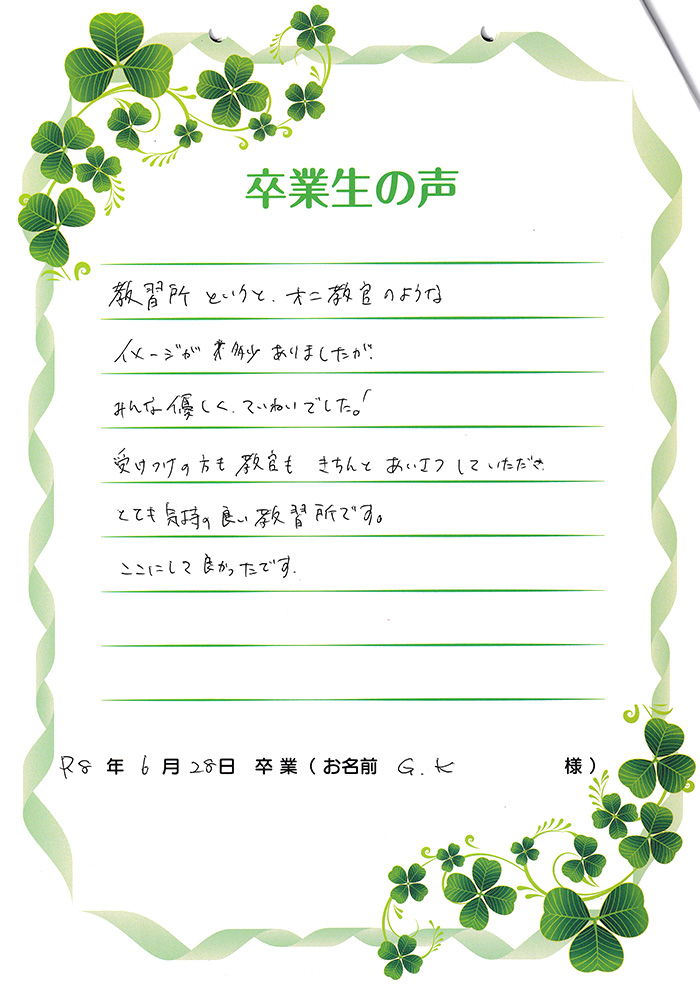 卒業生の声
教習所というと、オニ教官のような
イメージが多少ありましたが、
みんな優しく、ていねいでした。!
受けつけの方も教官も きちんと あいさつしていただき
とても気持の良い教習所です。
ここにして良かったです。
R8 年 6 月 28日 卒業(お名前 G.K 様)